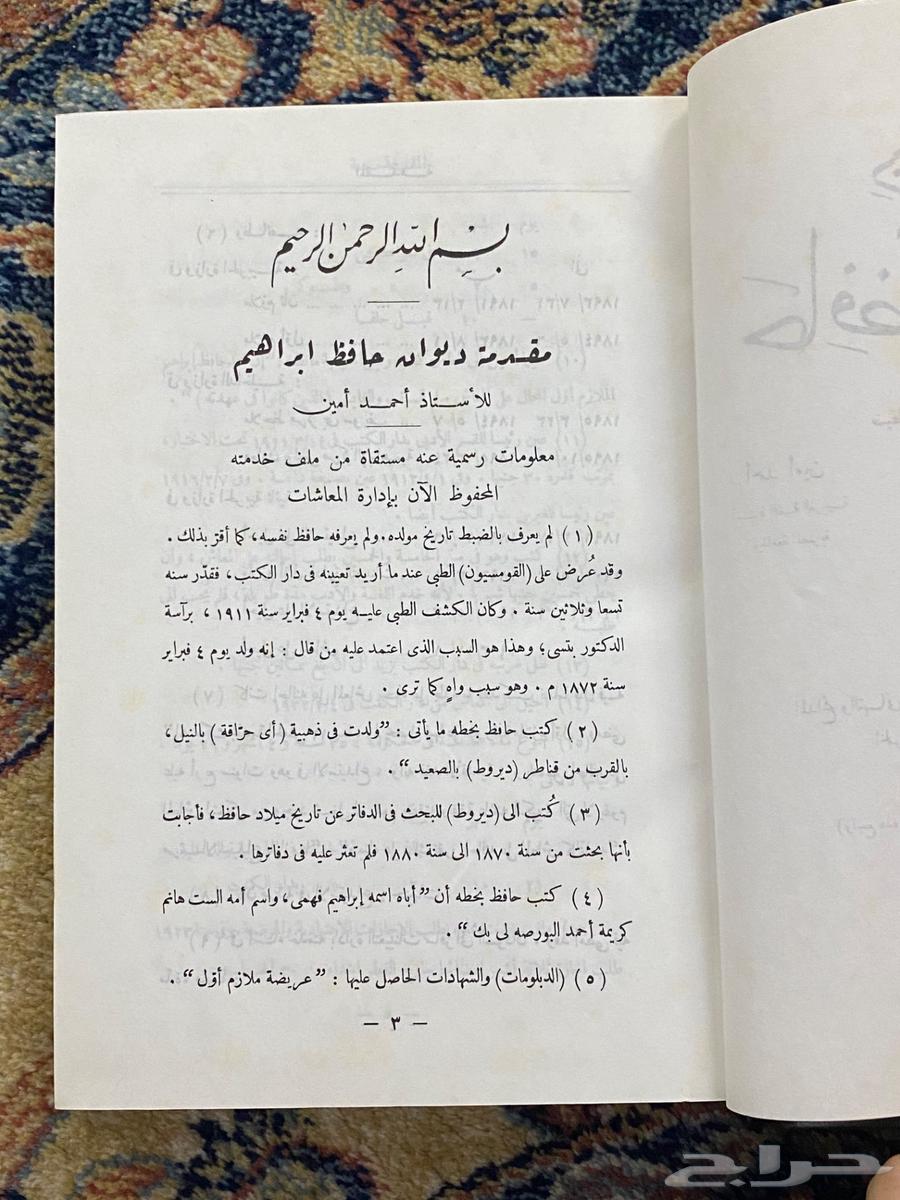 بسم الله الرحمن الرحيم
مقدمة ديوان حافظ ابراهيم
للأستاذ أحمد أمين
معلومات رسمية عنه مستقاة من ملف خدمته
المحفوظ الآن بإدارة المعاشات
(١) لم يعرف بالضبط تاريخ مولده. ولم يعرفه حافظ نفسه، كما أقرّ بذلك.
وقد عُرض على (القومسيون) الطبى عند ما أريد تعيينه فى دار الكتب، فقدّر سنه
تسعا وثلاثين سنة. وكان الكشف الطبى عليه يوم ٤ فبراير سنة ١٩١١، برآسة
الدكتور بتسى؛ وهذا هو السبب الذى اعتمد عليه من قال: إنه ولد يوم ٤ فبراير
سنة ١٨٧٢ م. وهو سبب واهٍ كما ترى.
(٢) كتب حافظ بخطه ما يأتى: "ولدت فى ذهبية (أى حرّاقة) بالنيل،
بالقرب من قناطر (ديروط) بالصعيد".
(٣) كُتب الى (ديروط) للبحث فى الدفاتر عن تاريخ ميلاد حافظ، فأجابت
بأنها بحثت من سنة ١٨٧٠ الى سنة ١٨٨٠ فلم تعثر عليه فى دفاترها.
(٤) كتب حافظ بخطه أن "أباه اسمه إبراهيم فهمى، واسم أمه الست هانم
كريمة أحمد البورصه لى بك".
(٥) (الدبلومات) والشهادات الحاصل عليها: "عريضة ملازم أوّل".
— ٣ —
حراج